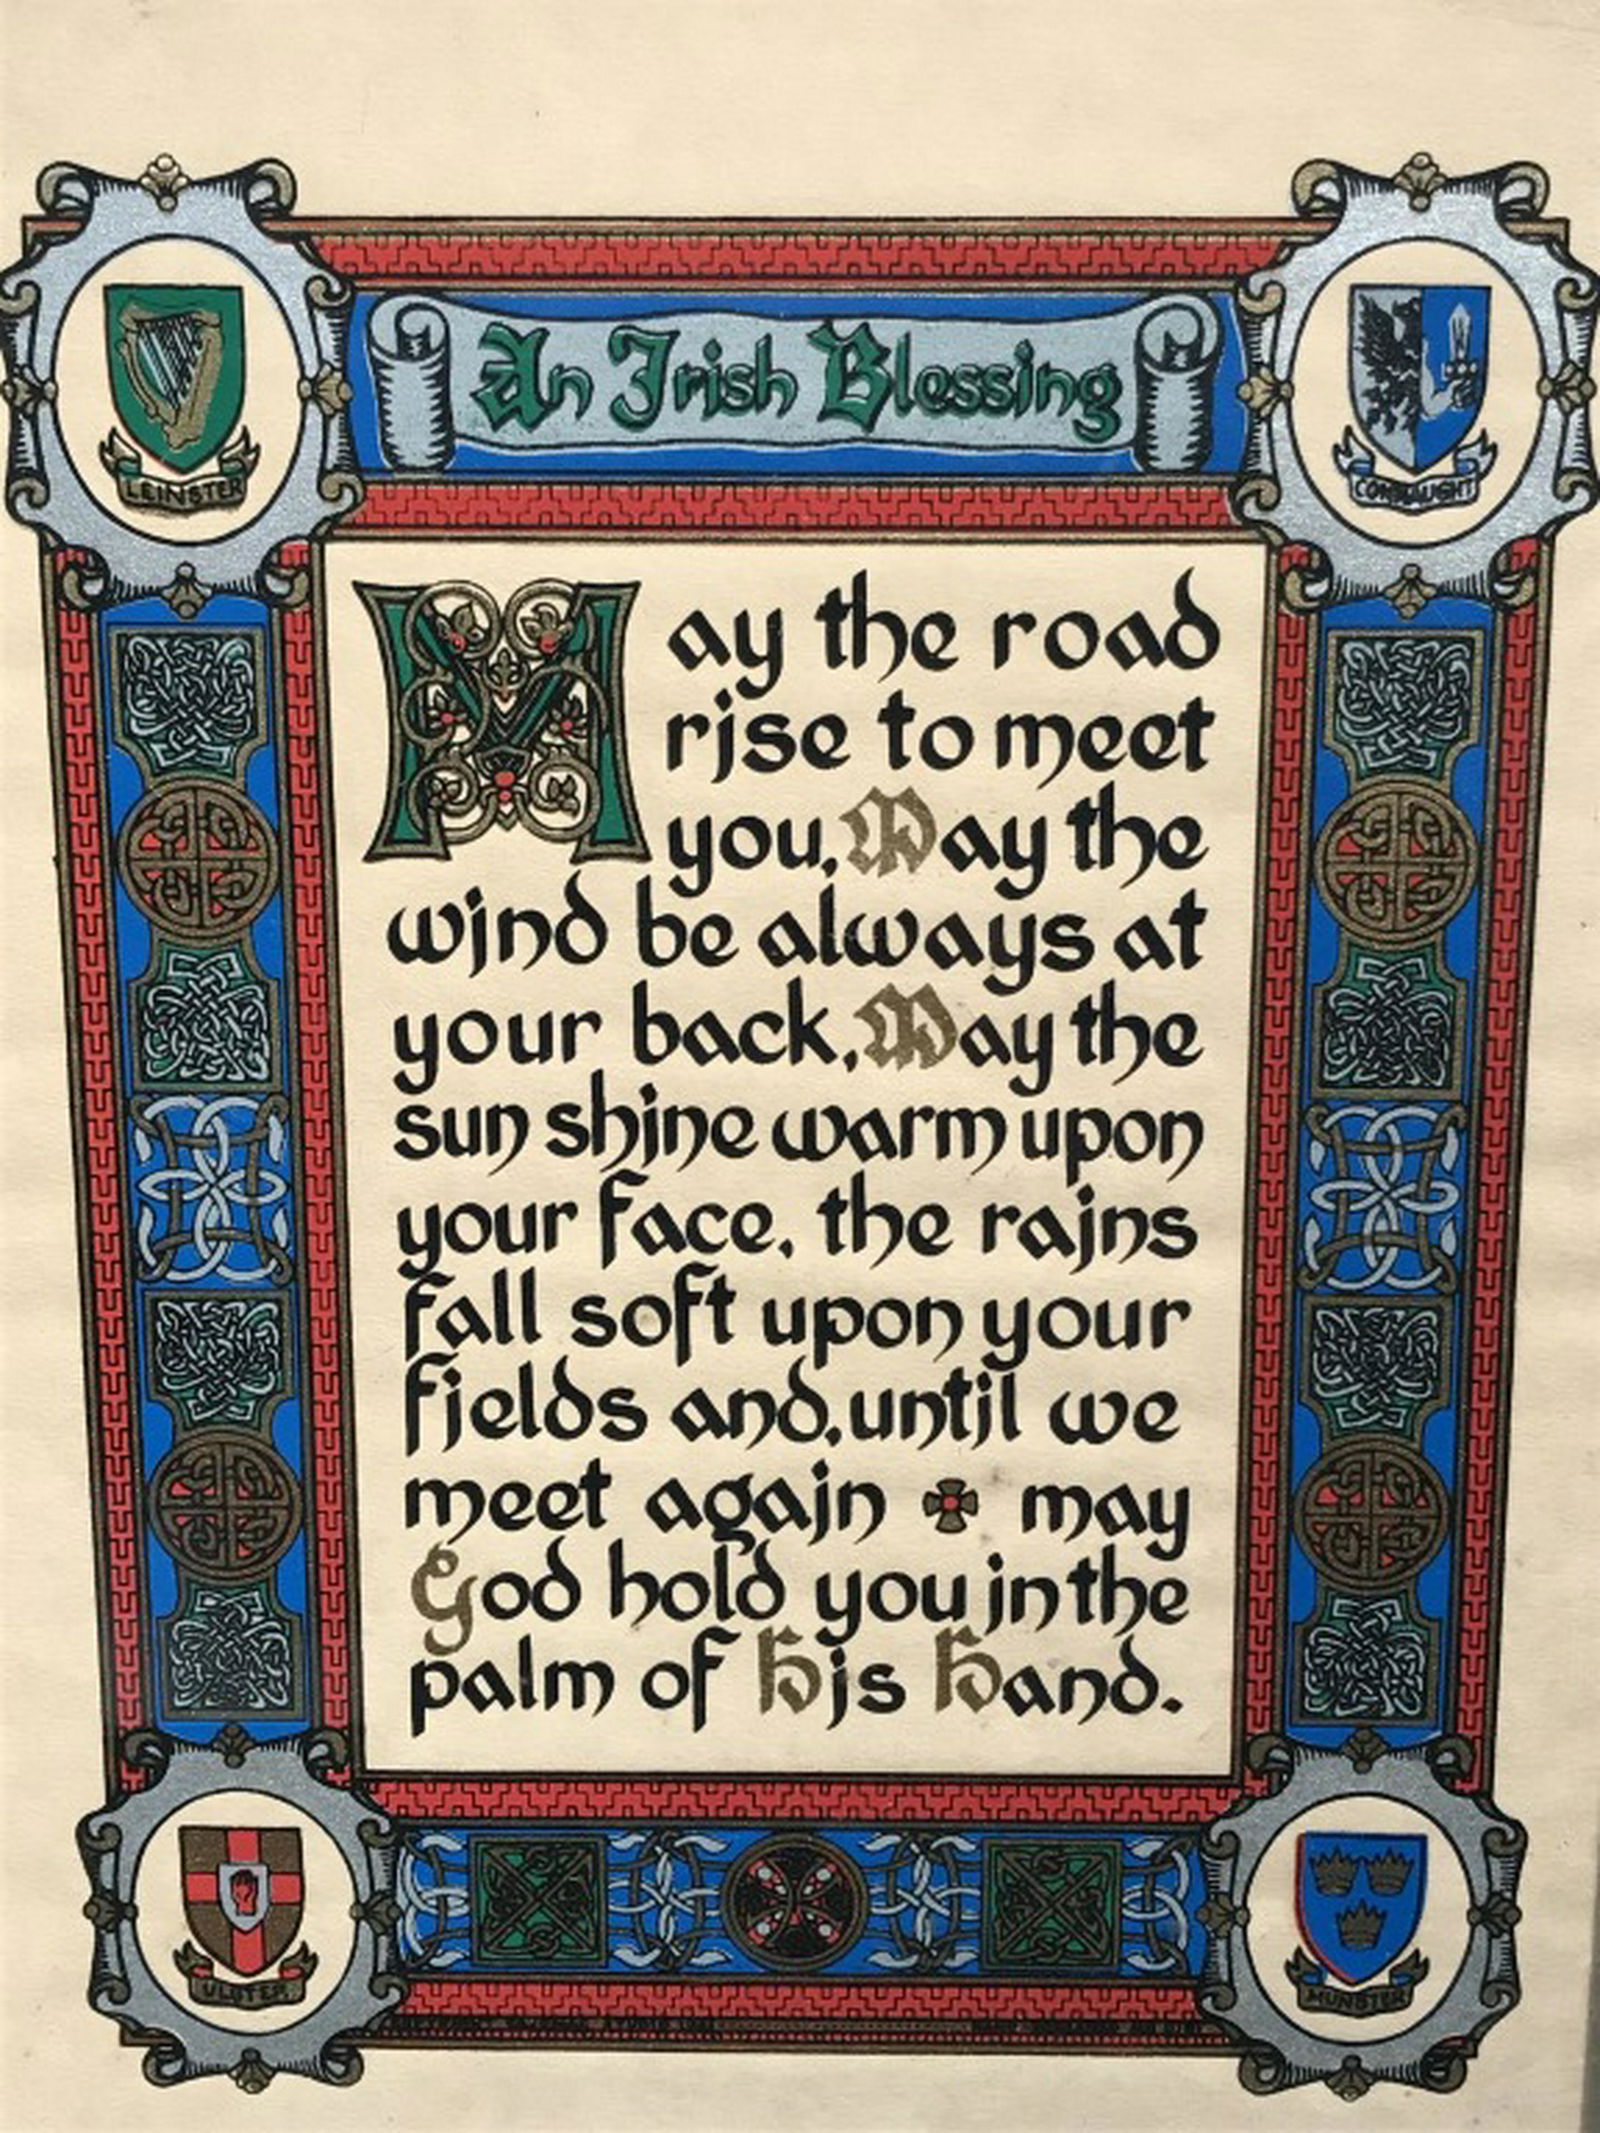 An Irish Blessing
LEINSTER
CONNAUGHT
May the road
rise to meet
you, May the
wind be always at
your back, May the
sun shine warm upon
your face, the rains
fall soft upon your
fields and, until we
meet again may
God hold you in the
palm of His Hand.
ULSTER
MUNSTER